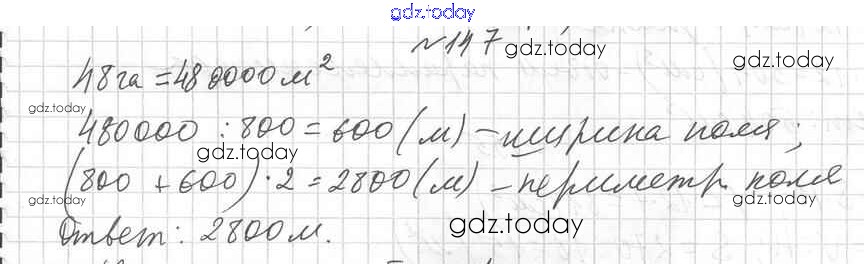 gdz.today
№ 147 gdz.today
48 га = 480000 м² gdz.today
gdz.today
480000 : 800 = 600 (м) – ширина поля;
gdz.today gdz.today
(800 + 600) · 2 = 2800 (м) – периметр поля
gdz.today gdz.today
Ответ: 2800 м. gdz.today